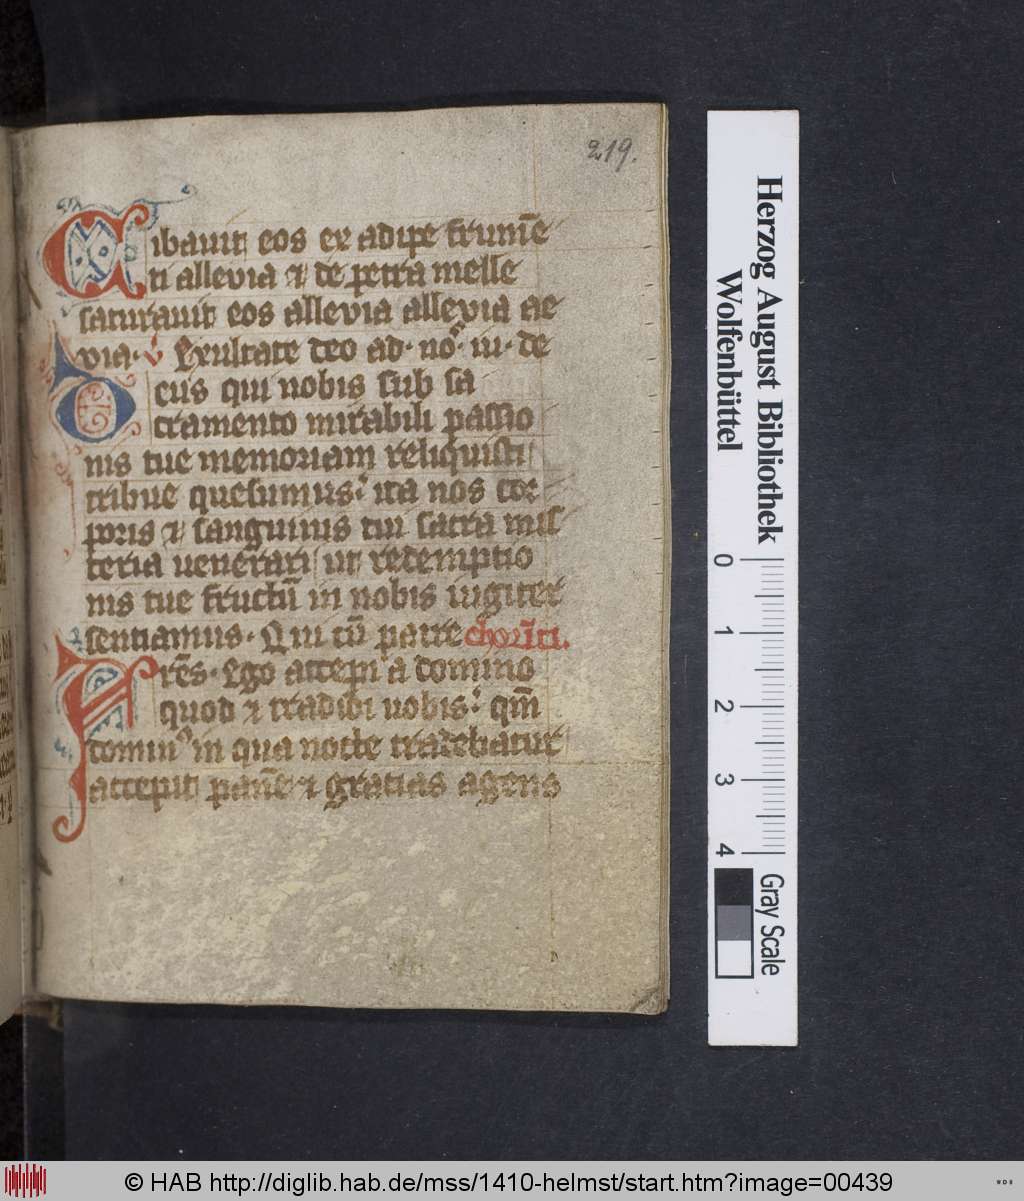 219.
Cibauit eos ex adipe frumē
ti allevia ⁊ de petra melle
saturauit eos allevia allevia ae
via. Exultate deo ad. no. iu. De
eus qui nobis sub sa
cramento mirabili passio
nis tue memoriam reliquisti
tribue quesumus ita nos cor
poris ⁊ sanguinis tui sacra mis
teria venerari ut redemptio
nis tue fructū in nobis iugiter
sentiamus. Qui cū patre chorīti.
Frēs. Ego accepi a domino
quod ⁊ tradidi uobis qm̄
dominꝰ in qua nocte tradebatur
accepit panē ⁊ gratias agens
Herzog August Bibliothek
Wolfenbüttel
0
1
2
3
4
Gray Scale
© HAB http://diglib.hab.de/mss/1410-helmst/start.htm?image=00439